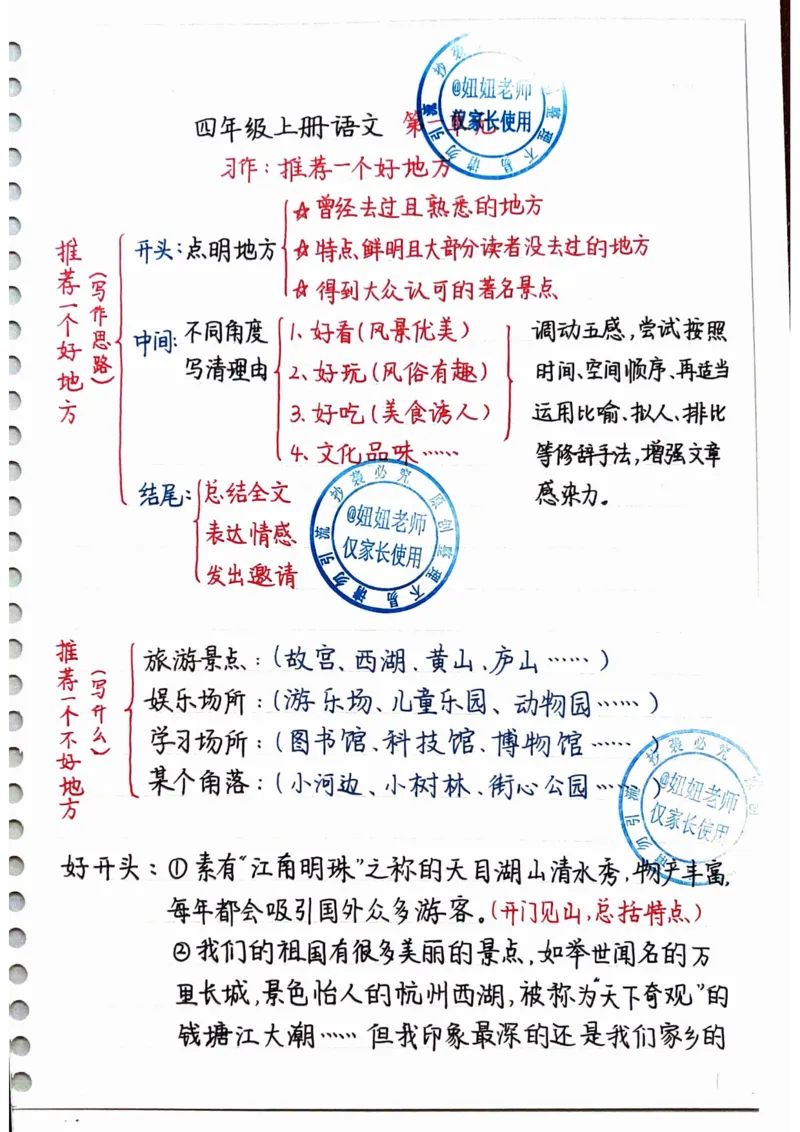 四年级上册语文 第一单元
习作：推荐一个好地方
推荐一个好地方
（写作思路）
开头：点明地方
☆曾经去过且熟悉的地方
☆特点鲜明且大部分读者没去过的地方
☆得到大众认可的著名景点
中间：不同角度
写清理由
1、好看（风景优美）
2、好玩（风俗有趣）
3、好吃（美食诱人）
4、文化品味……
调动五感，尝试按照
时间、空间顺序、再适当
运用比喻、拟人、排比
等修辞手法，增强文章
感染力。
结尾：
总结全文
表达情感
发出邀请
推荐一个不好地方
（写什么）
旅游景点：（故宫、西湖、黄山、庐山……）
娱乐场所：（游乐场、儿童乐园、动物园……）
学习场所：（图书馆、科技馆、博物馆……）
某个角落：（小河边、小树林、街心公园……）
好开头：①素有“江南明珠”之称的天目湖山清水秀，物产丰富，
每年都会吸引国外众多游客。（开门见山，总括特点）
②我们的祖国有很多美丽的景点，如举世闻名的万
里长城，景色怡人的杭州西湖，被称为“天下奇观”的
钱塘江大潮……但我印象最深的还是我们家乡的
@妞妞老师
仅家长使用
抄袭必究 原创整理不易请勿引流
@妞妞老师
仅家长使用
@妞妞老师
仅家长使用